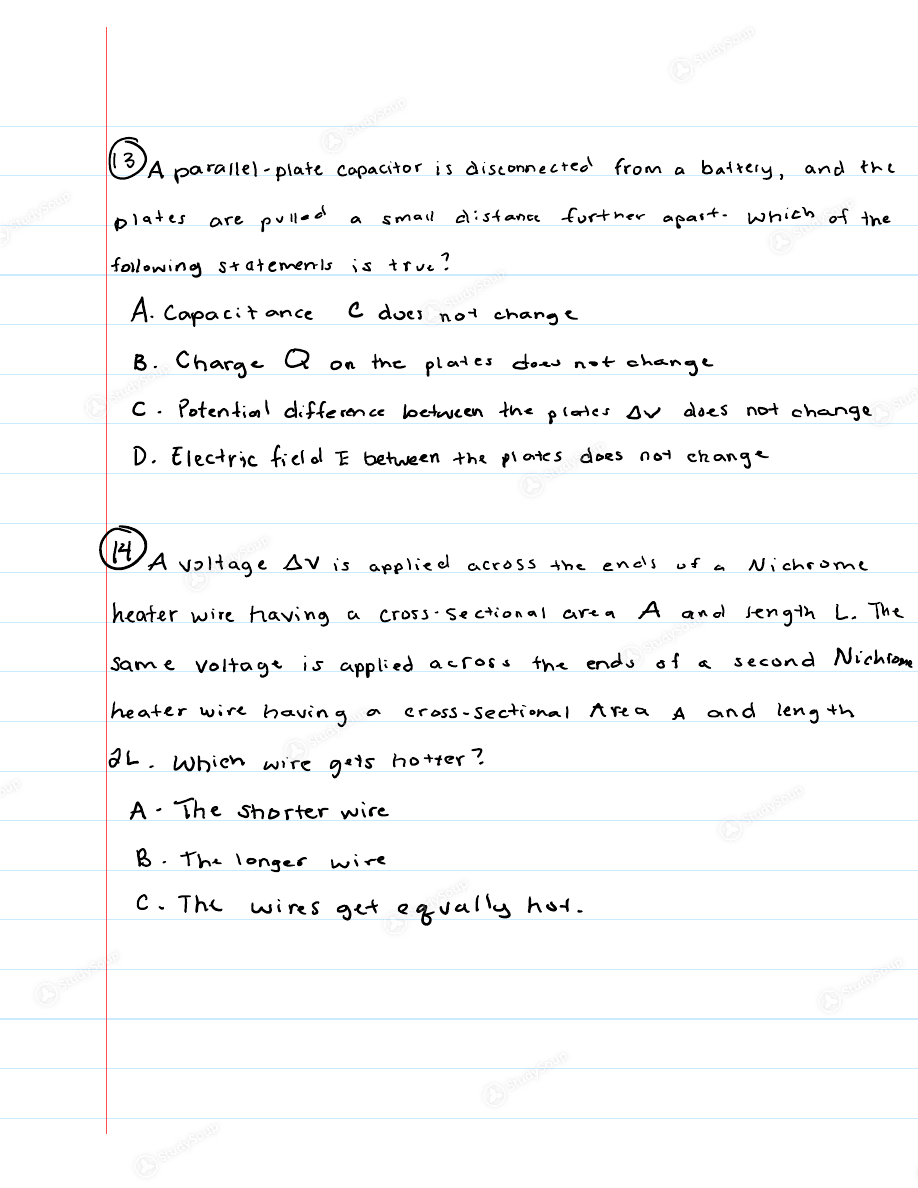 13 A parallel-plate capacitor is disconnected from a battery, and the
plates are pulled a small distance further apart. Which of the
following statements is true?
A. Capacitance C does not change
B. Charge Q on the plates does not change
C. Potential difference between the plates ΔV does not change
D. Electric field E between the plates does not change
14 A voltage ΔV is applied across the ends of a Nichrome
heater wire having a cross-sectional area A and length L. The
same voltage is applied across the ends of a second Nichrome
heater wire having a cross-sectional Area A and length
2L. Which wire gets hotter?
A. The shorter wire
B. The longer wire
C. The wires get equally hot.
StudySoup